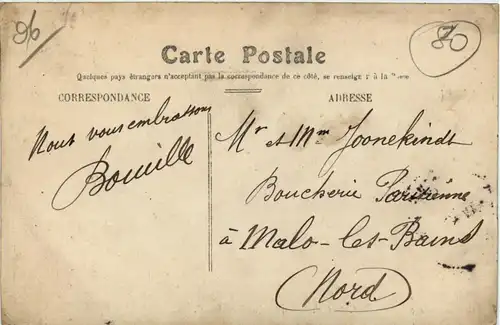 96
80
Carte Postale
Quelques pays étrangers n'acceptant pas la correspondance de ce côté, se renseigner à la
CORRESPONDANCE
ADRESSE
Nous vous embrassons
Bouille
Mr et Mme Joonekindt
Boucherie Parisienne
à Malo-les-Bains
Nord